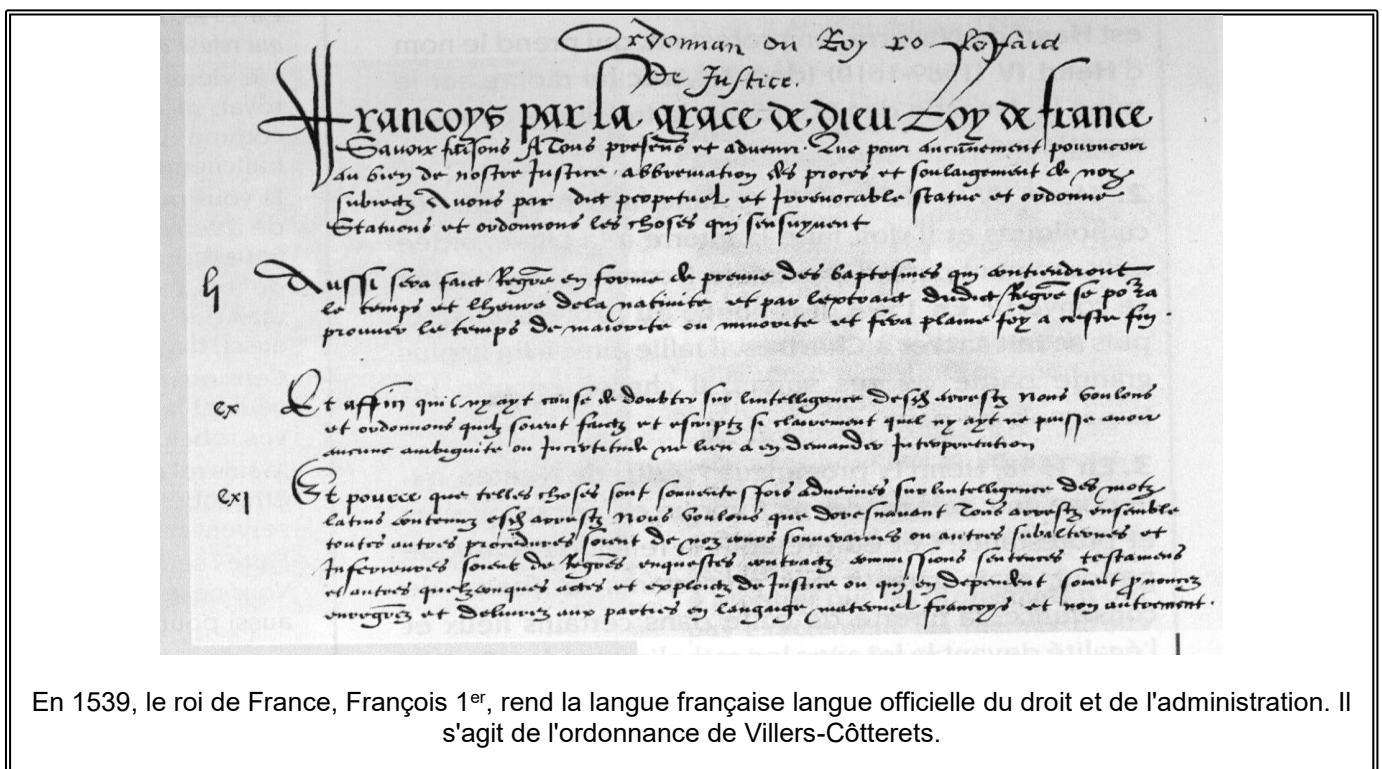 Ordonnan du Roy
de Justice.
francoys par la grace de dieu Roy de france
Savoir faisons A Tous presens et advenir. Que pour aucunement
au bien de nostre Justice abbreviation des proces et soulaigement de noz
subiectz Avons par dict perpetuel et Irrevocable statue et ordonne
Statuons et ordonnons les choses qui sensuyvent
Aussi sera faict Regrē en forme de preuve des baptesmes qui contiendront
le temps et lheure dela nativite et par lextraict dudict Regrē se porra
prouver le temps de maiorite ou minorite et fera plaine foy a ceste fin.
cx Et affin quil ny ayt cause de doubter sur lintelligence desdictz arrestz Nous Voulons
et ordonnons quilz soient faictz et escriptz si clairement quil ny ayt ne puisse avoir
aucune ambiguite ou Incertitude ne lieu a en demander Interpretation
cxj Et pource que telles choses sont souventesfois advenues sur lintelligence des motz
latins contenuz esdictz arrestz Nous Voulons que doresnavant Tous arrestz ensemble
toutes autres procedures soient de noz cours souveraines ou autres subalternes et
Inferieures soient de Regrēs enquestes contractz commissions sentences testamens
et autres quelzconques actes et exploictz de Justice ou qui en dependent soient prnoncez
enregrēz et delivrez aux parties en langaige maternel francoys et non autrement.
En 1539, le roi de France, François 1er, rend la langue française langue officielle du droit et de l'administration. Il
s'agit de l'ordonnance de Villers-Côtterets.